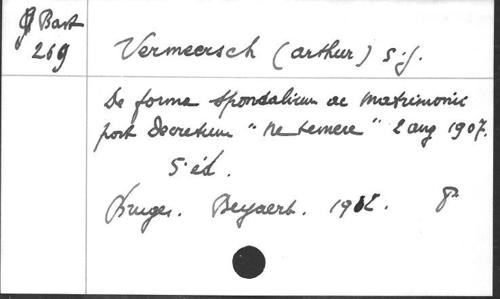 Bart
269
Vermeersch (arthur) s.j.
De forma sponsalium ac matrimonii
post decretum "Ne temere" 2 aug 1907.
5 éd.
Bruges. Beyaert. 1912.